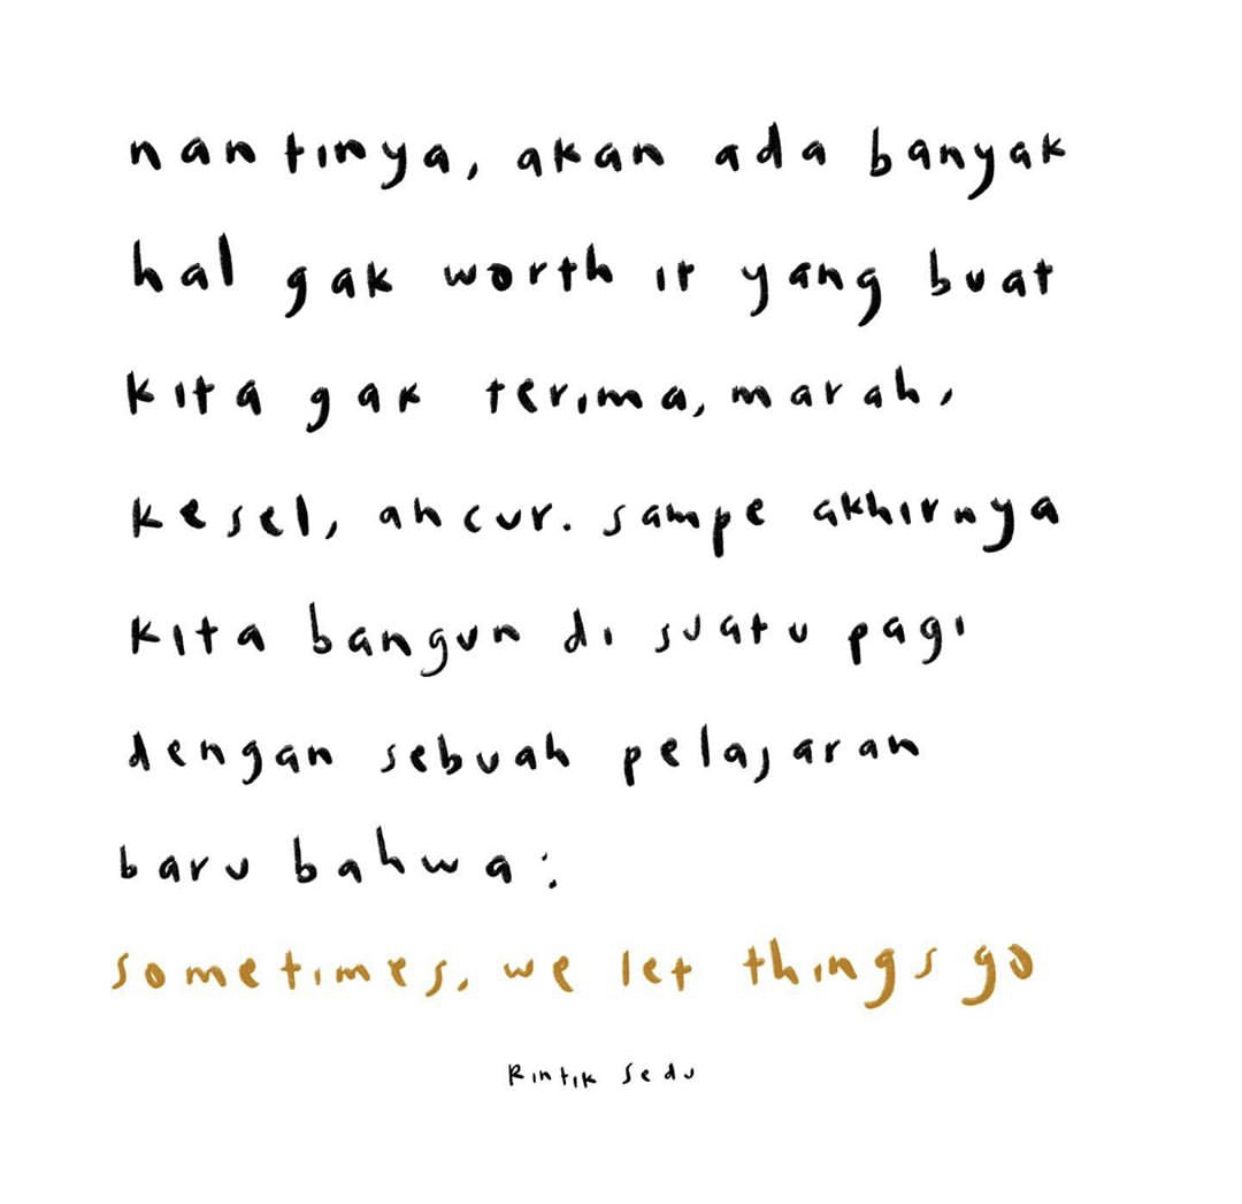 nantinya, akan ada banyak
hal gak worth it yang buat
kita gak terima, marah,
kesel, ancur. sampe akhirnya
kita bangun di suatu pagi
dengan sebuah pelajaran
baru bahwa:
sometimes, we let things go
Rintik Sedu